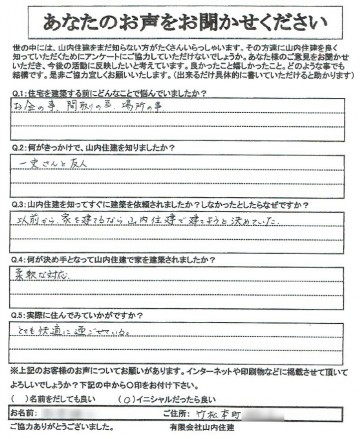 あなたのお声をお聞かせください
世の中には、山内住建をまだ知らない方がたくさんいらっしゃいます。その方達に山内住建を良く
知っていただくためにアンケートにご協力していただけないでしょうか。あなた様のご意見をお聞かせ
いただき、今後の活動に反映したいと考えています。良かったこと嬉しかったこと。どのような事でも
結構です。是非ご協力宜しくお願いいたします。(出来るだけ具体的に書いていただけると助かります)
Q.1:住宅を建築する前にどんなことで悩んでいましたか?
お金の事、間取りの事、場所の事
Q.2:何がきっかけで、山内住建を知りましたか?
一史さんと友人
Q.3:山内住建を知ってすぐに建築を依頼されましたか?しなかったとしたらなぜですか?
以前から、家を建てるなら山内住建で建てようと決めていた。
Q.4:何が決め手となって山内住建で家を建築されましたか?
柔軟な対応
Q.5:実際に住んでみていかがですか?
とても快適に過ごせている。
※上記のお客様のお声についてお願いがあります。インターネットや印刷物などに掲載させて頂いて
よろしいでしょうか?下記の中から〇印をお付け下さい。
( )名前をだしても良い (〇)イニシャルだったら良い
お名前: ご住所: 竹松本町
ご協力ありがとうございました。 有限会社山内住建